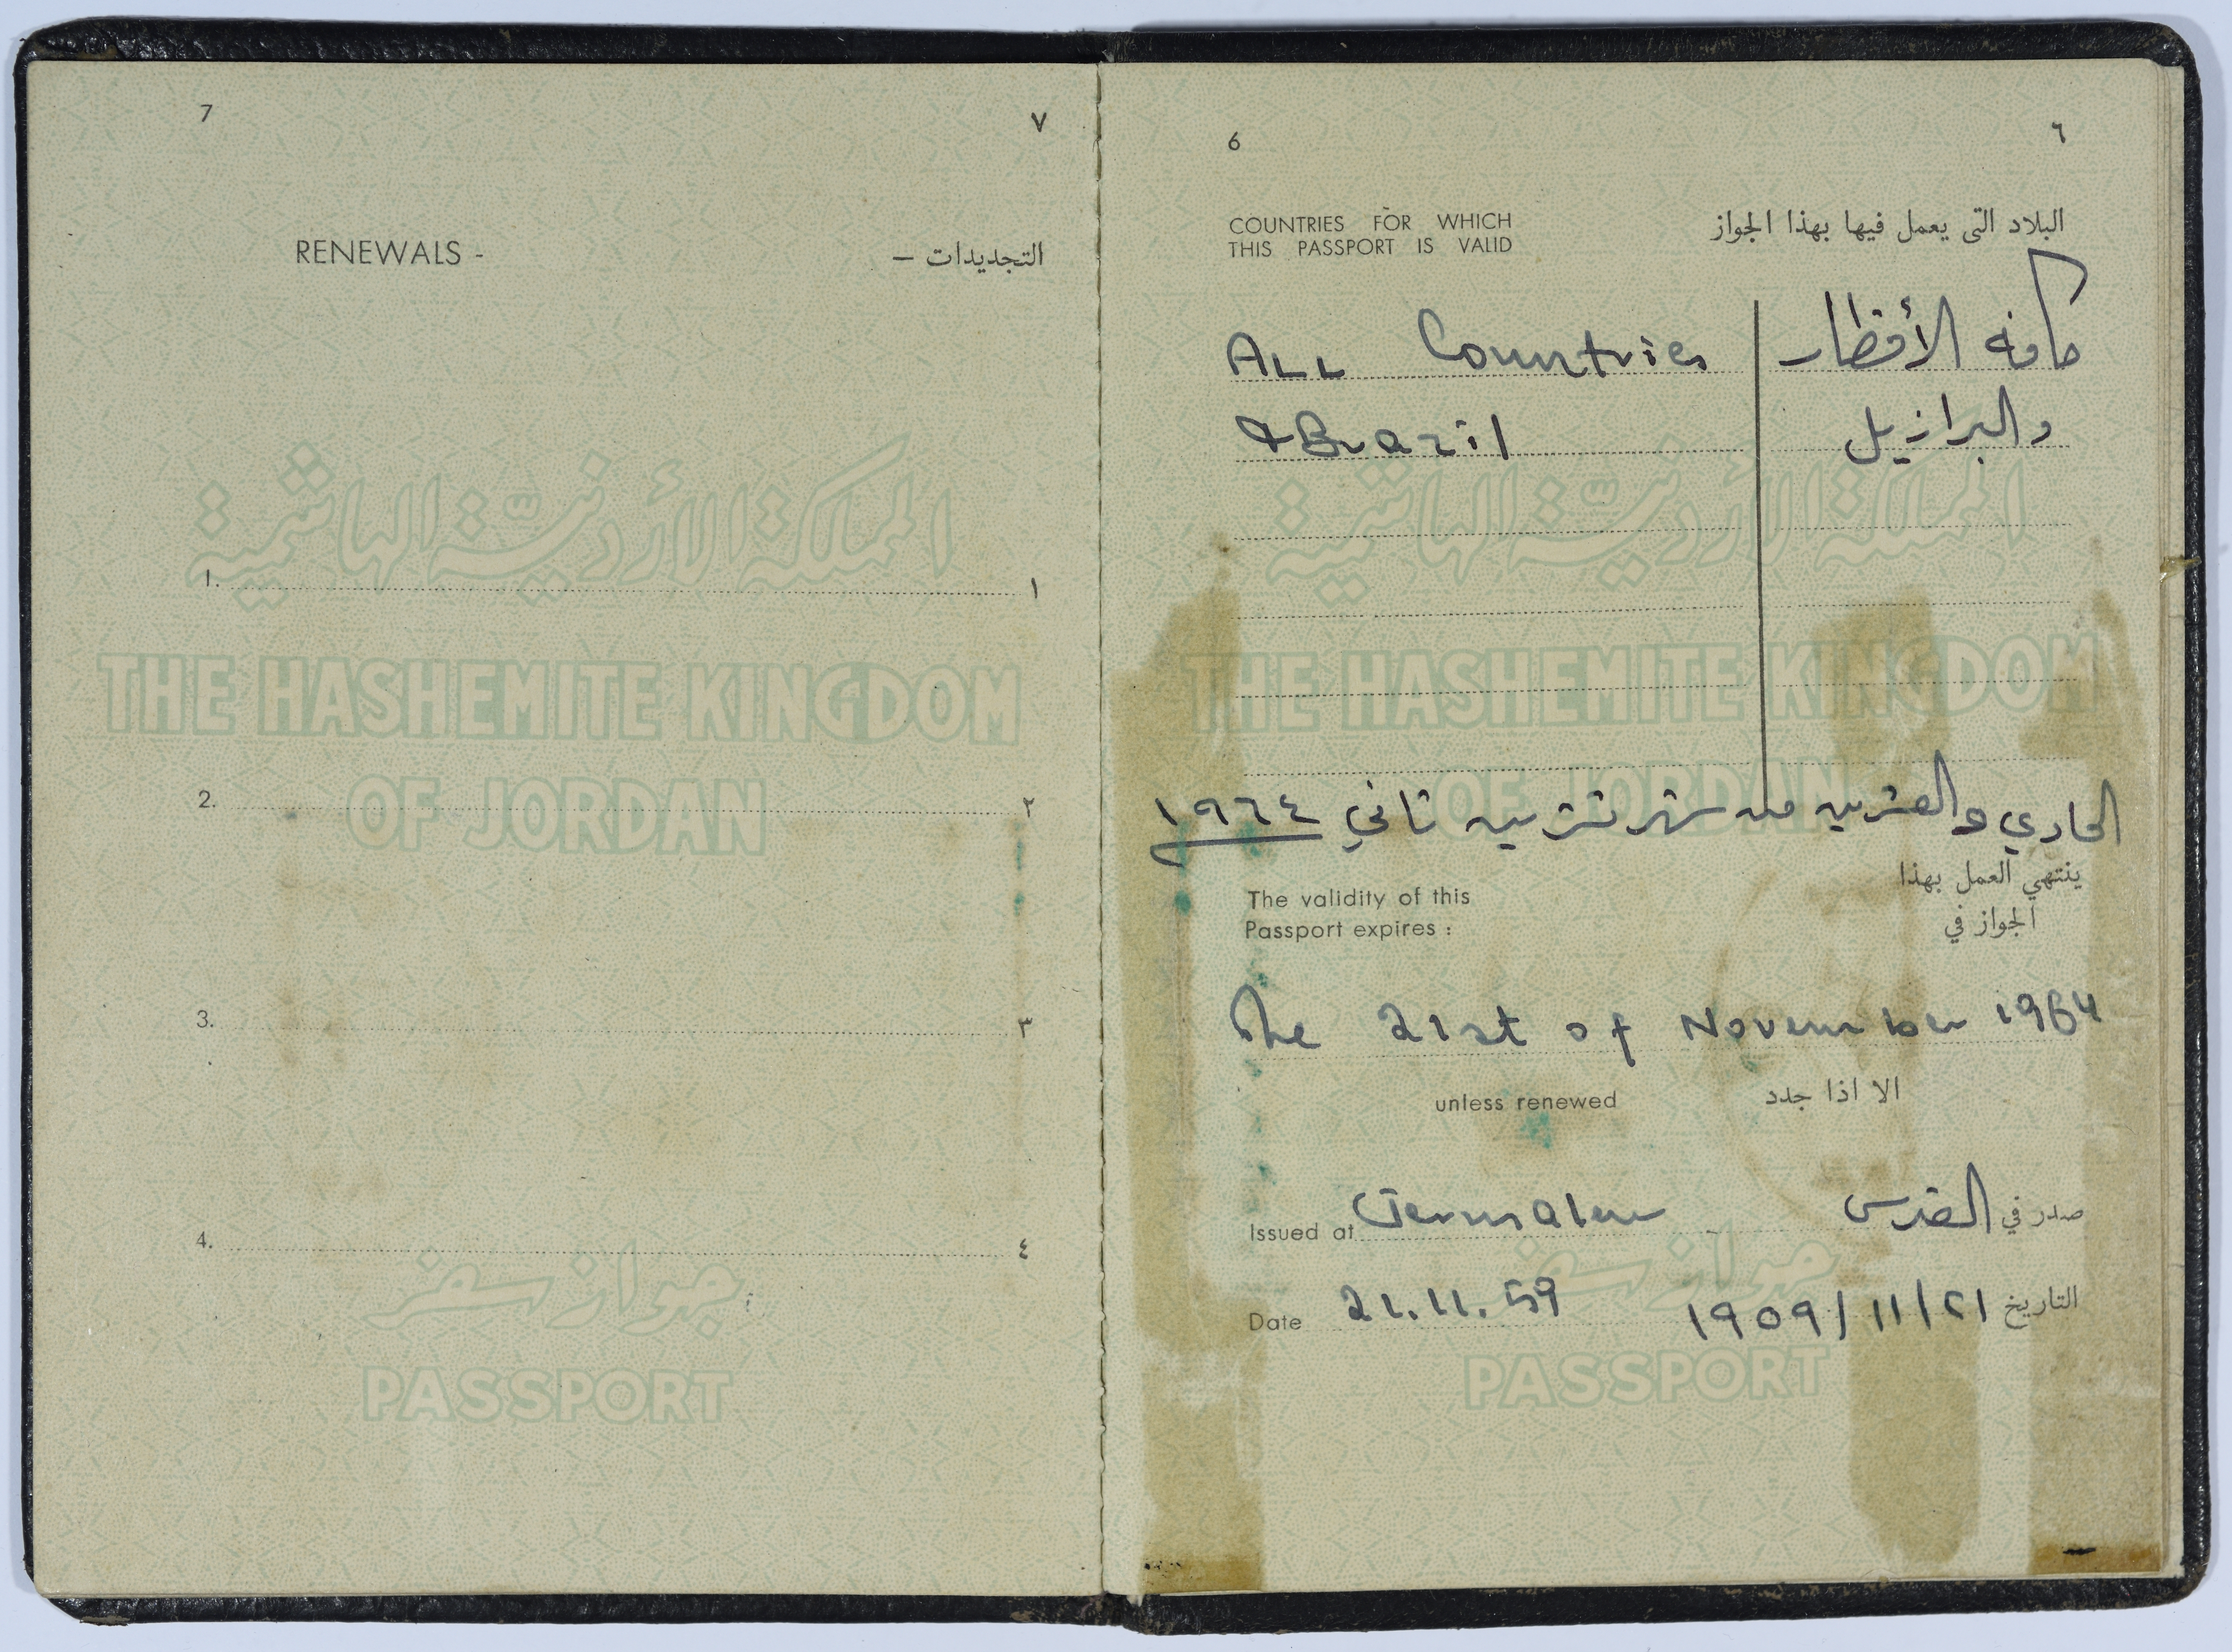 7 ٧
RENEWALS - التجديدات –
المملكة الأردنية الهاشمية
1. ١
THE HASHEMITE KINGDOM
2. ٢
OF JORDAN
3. ٣
4. ٤
جواز سفر
PASSPORT
6 ٦
COUNTRIES FOR WHICH
THIS PASSPORT IS VALID
البلاد التى يعمل فيها بهذا الجواز
ALL Countries كافه الأقطار
& Brazil والبرازيل
المملكة الأردنية الهاشمية
THE HASHEMITE KINGDOM
OF JORDAN
الحادي والعشرين من شهر تشرين ثاني ١٩٦٤
The validity of this
Passport expires :
ينتهي العمل بهذا
الجواز في
The 21st of November 1964
unless renewed الا اذا جدد
Issued at Jerusalem صدر في القدس
جواز سفر
Date 21.11.59 التاريخ ٢١/١١/١٩٥٩
PASSPORT